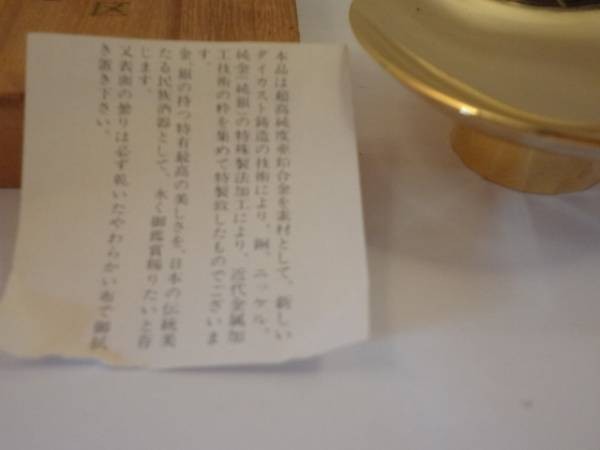 本品は超高純度亜鉛合金を素材として、新しい
ダイカスト鋳造の技術により、銅、ニッケル、
純金(純銀)の特殊製法加工により、近代金属加
工技術の粋を集めて特製致したものでございま
す。
金、銀の持つ特有最高の美しさを、日本の伝統美
たる民族酒器として、永く御鑑賞賜りたいと存
じます。
又表面の曇りは必ず乾いたやわらかい布で御拭
き置き下さい。